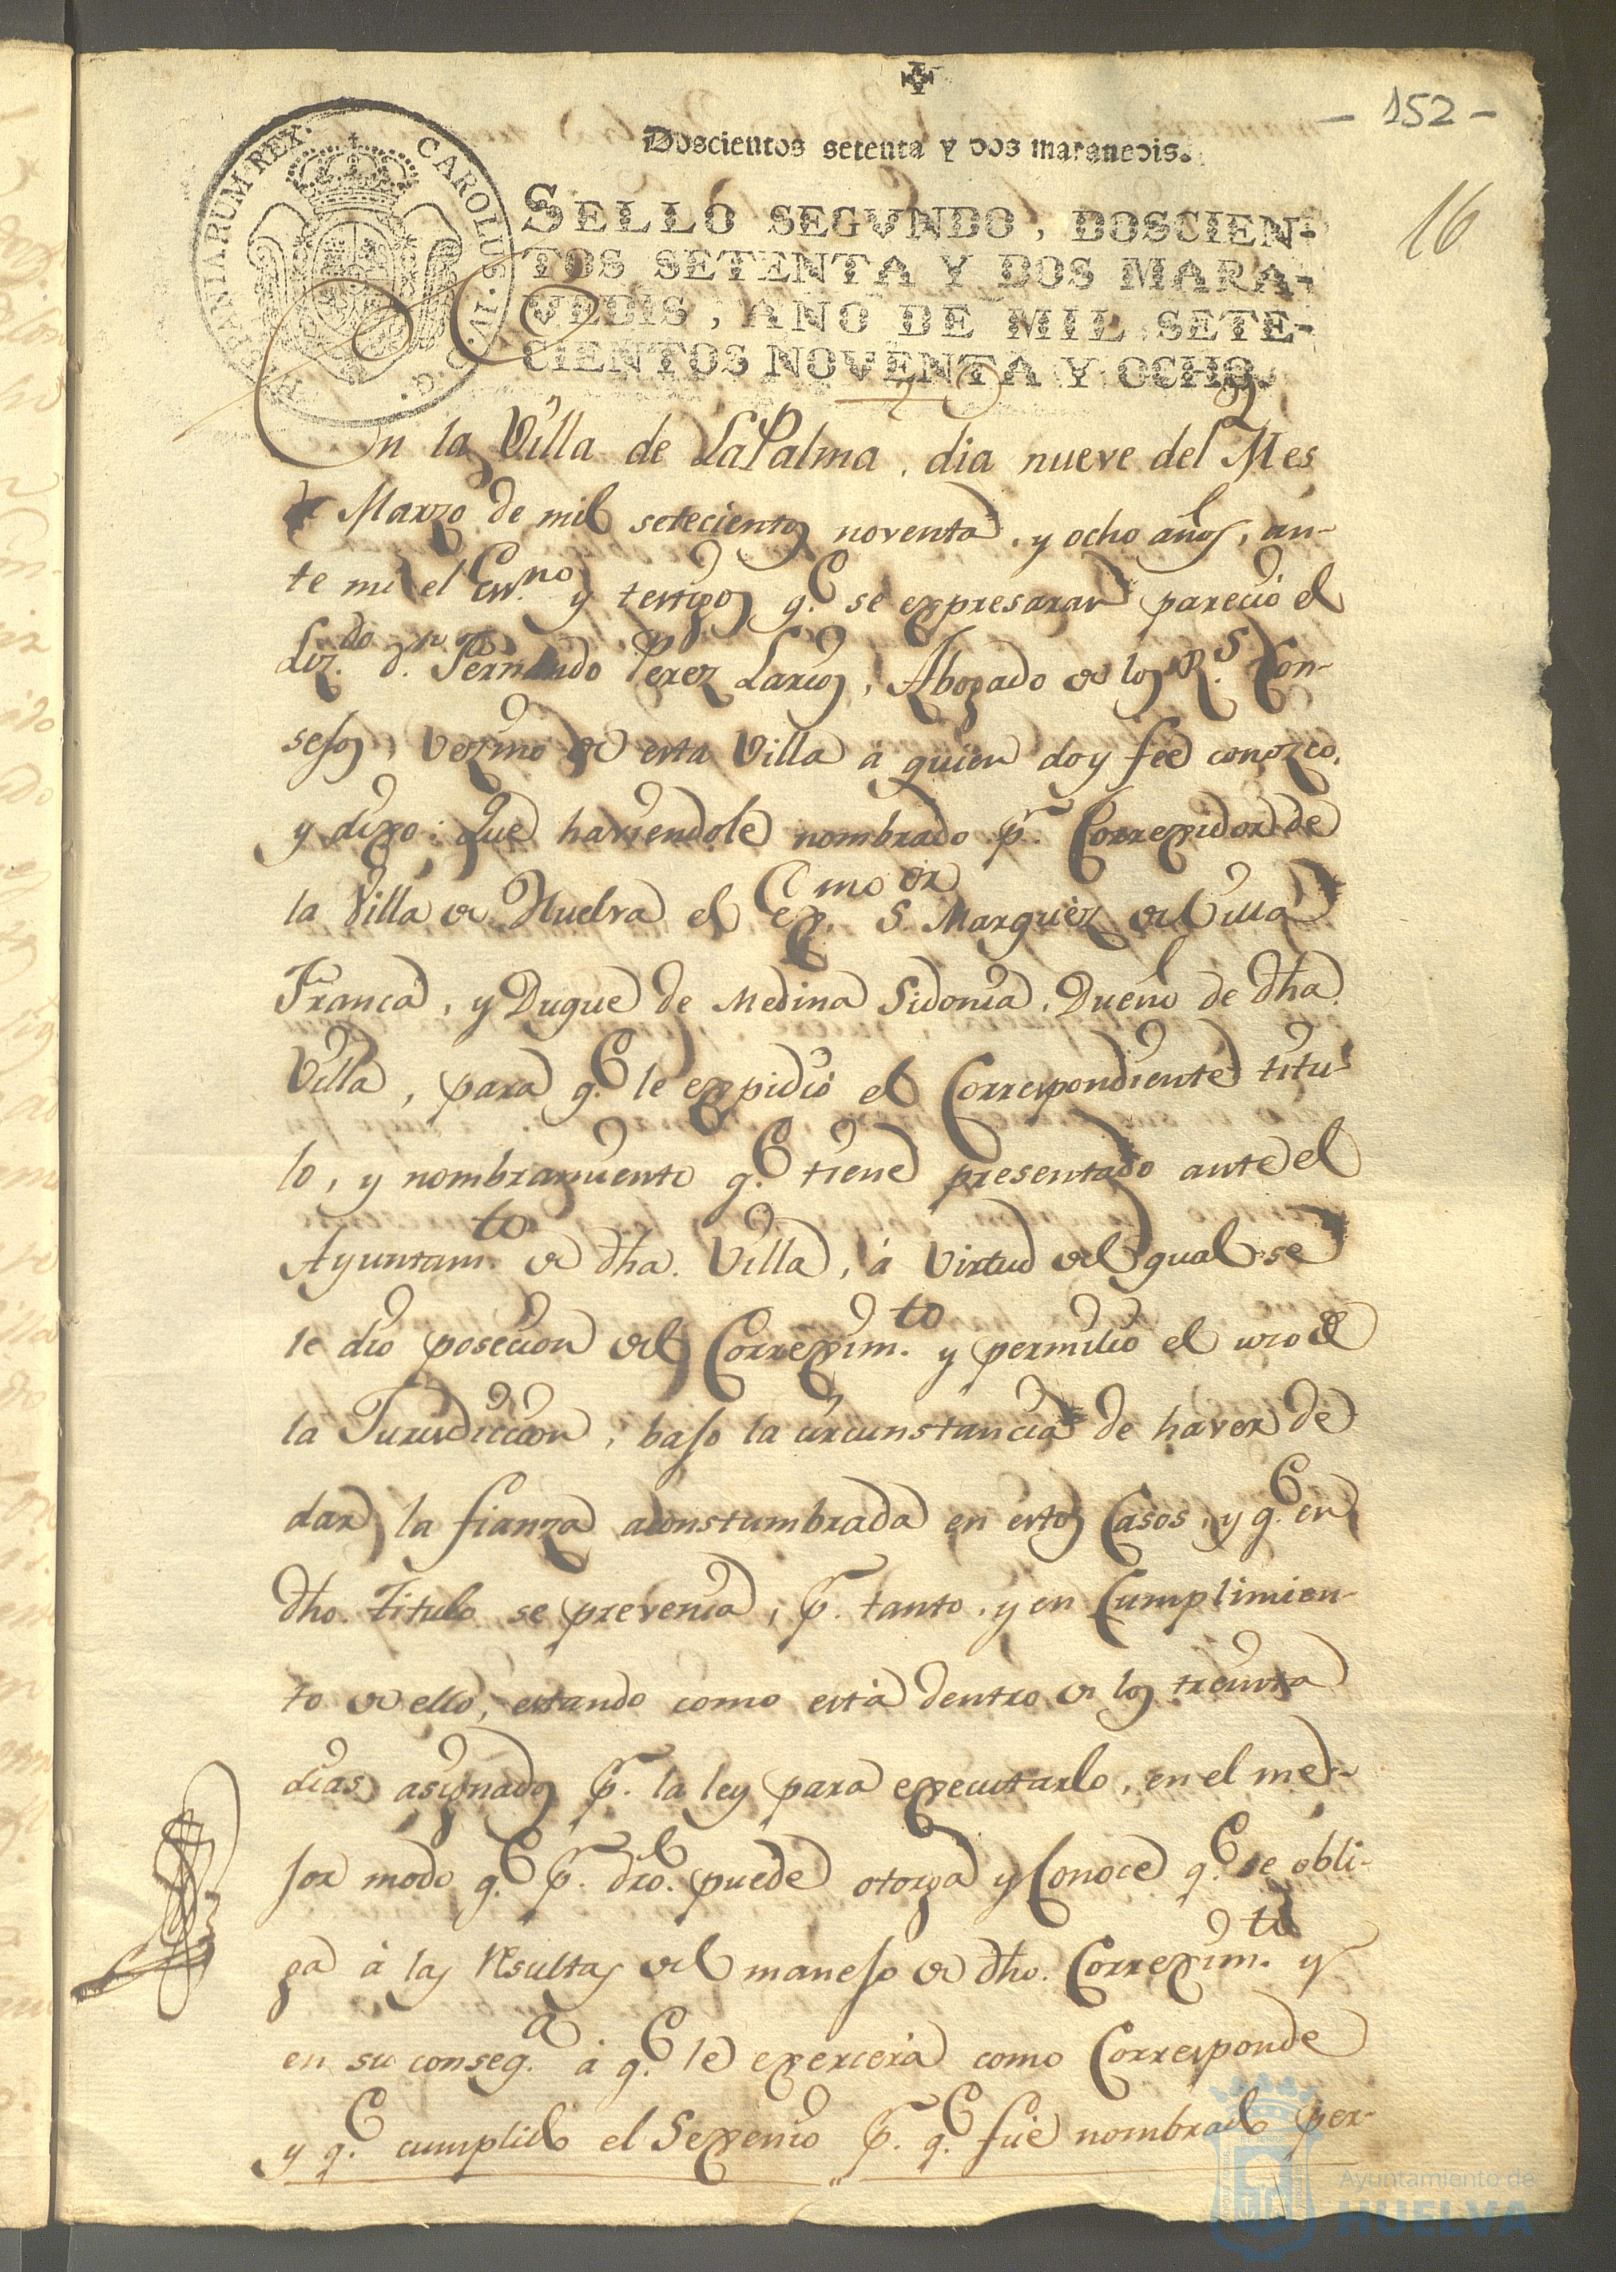 - 152 -
16
HISPANIARUM REX. CAROLUS. IV. D. G.
Doscientos setenta y dos maravedis.
SELLO SEGVNDO, DOSCIEN-
TOS SETENTA Y DOS MARA-
VEDIS, AÑO DE MIL SETE-
CIENTOS NOVENTA Y OCHO.
En la Villa de LaPalma, dia nueve del Mes
de Marzo de mil setecientos noventa, y ocho años, an-
te mi el Essno. y testigos q.e se expresaran parecio el
Liz.do d.n Fernando Perez Larios, Abogado de los R.s Con-
sejos, vezino de esta Villa a quien doy feé conozco,
y dixo: Que haviendole nombrado p.r Correxidor de
la Villa de Huelva el Exmo. S.or Marquez de Villa
Franca, y Duque de Medina Sidonia, Dueño de dha.
Villa, para q.e le expidió el Correspondiente titu-
lo, y nombramiento q.e tiene presentado ante el
Ayuntam.to de dha. Villa, á virtud del qual se
le dio posecion del Correxim.to y permitió el uso de
la Jurisdiccion, bajo la circunstancia de haver de
dar la fianza aconstumbrada en estos Casos, y q.e en
dho. Titulo se prevenia, p.r tanto, y en Cumplimien-
to de ello, estando como está dentro de los treinta
dias asignados p.r la ley para executarlo, en el me-
jor modo q.e p.r dro. puede otorga y Conoce q.e se obli-
ga á las resultas del manejo de dho. Correxim.to y
en su conseq.a á q.e le exercerá como Corresponde
y q.e cumplido el Sexenio p.r q.e fué nombrado per-
Ayuntamiento de
HUELVA